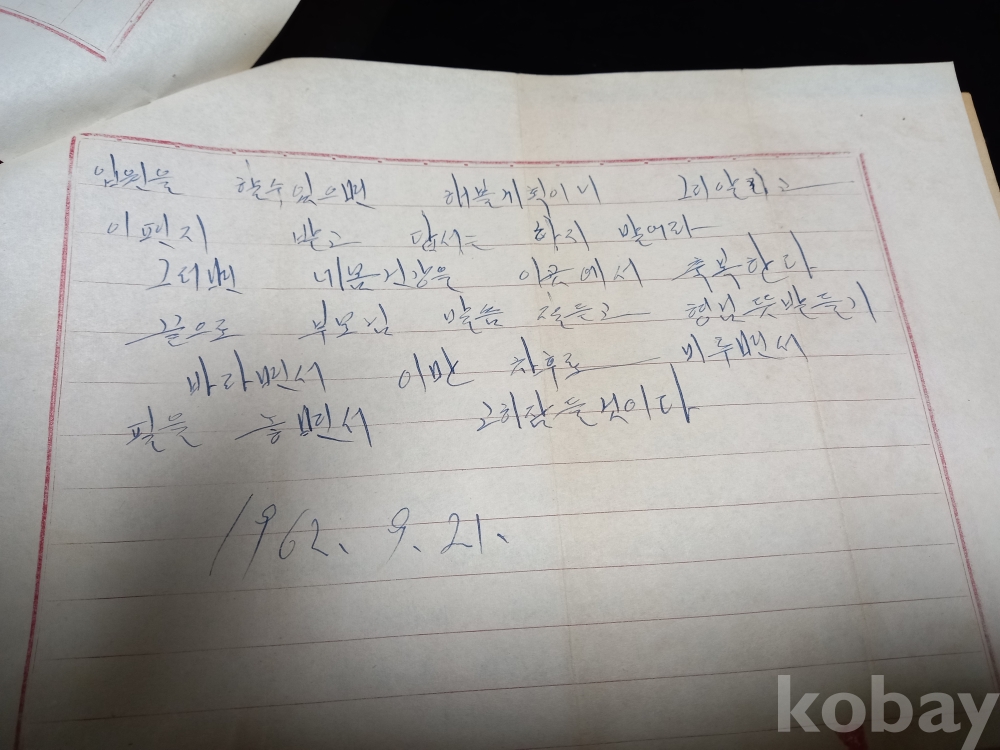 입원을 할수 있으면 해볼계획이니 그리알고
이편지 받고 답서는 하지 말어라
그러면 네몸건강을 이곳에서 축복한다
끝으로 부모님 말씀 잘듣고 형님뜻받들기
바라면서 이만 차후로 미루면서
필을 놓면서
1962. 9. 21.
kobay